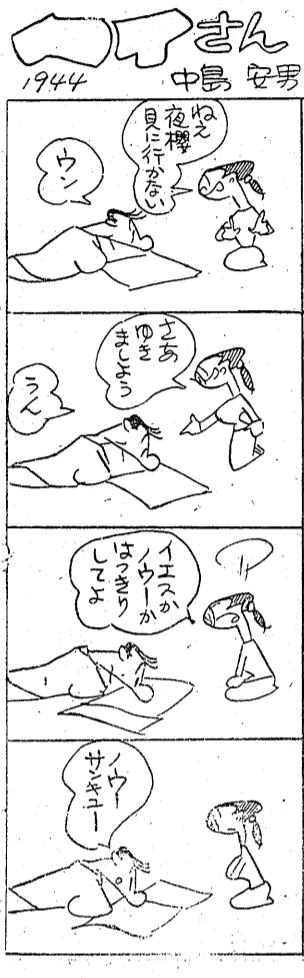 ヘイさん
1944 中島 安男
ねえ
夜櫻
見に行かない
ウン
さあ
ゆき
ましよう
うん
イエスか
ノウーか
はつきり
してよ
ノウー
サンキュー